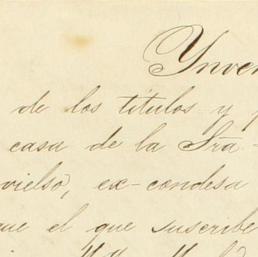 Ynven
de los títulos y p
casa de la Sra-
vielso, ex-condesa
que el que suscribe